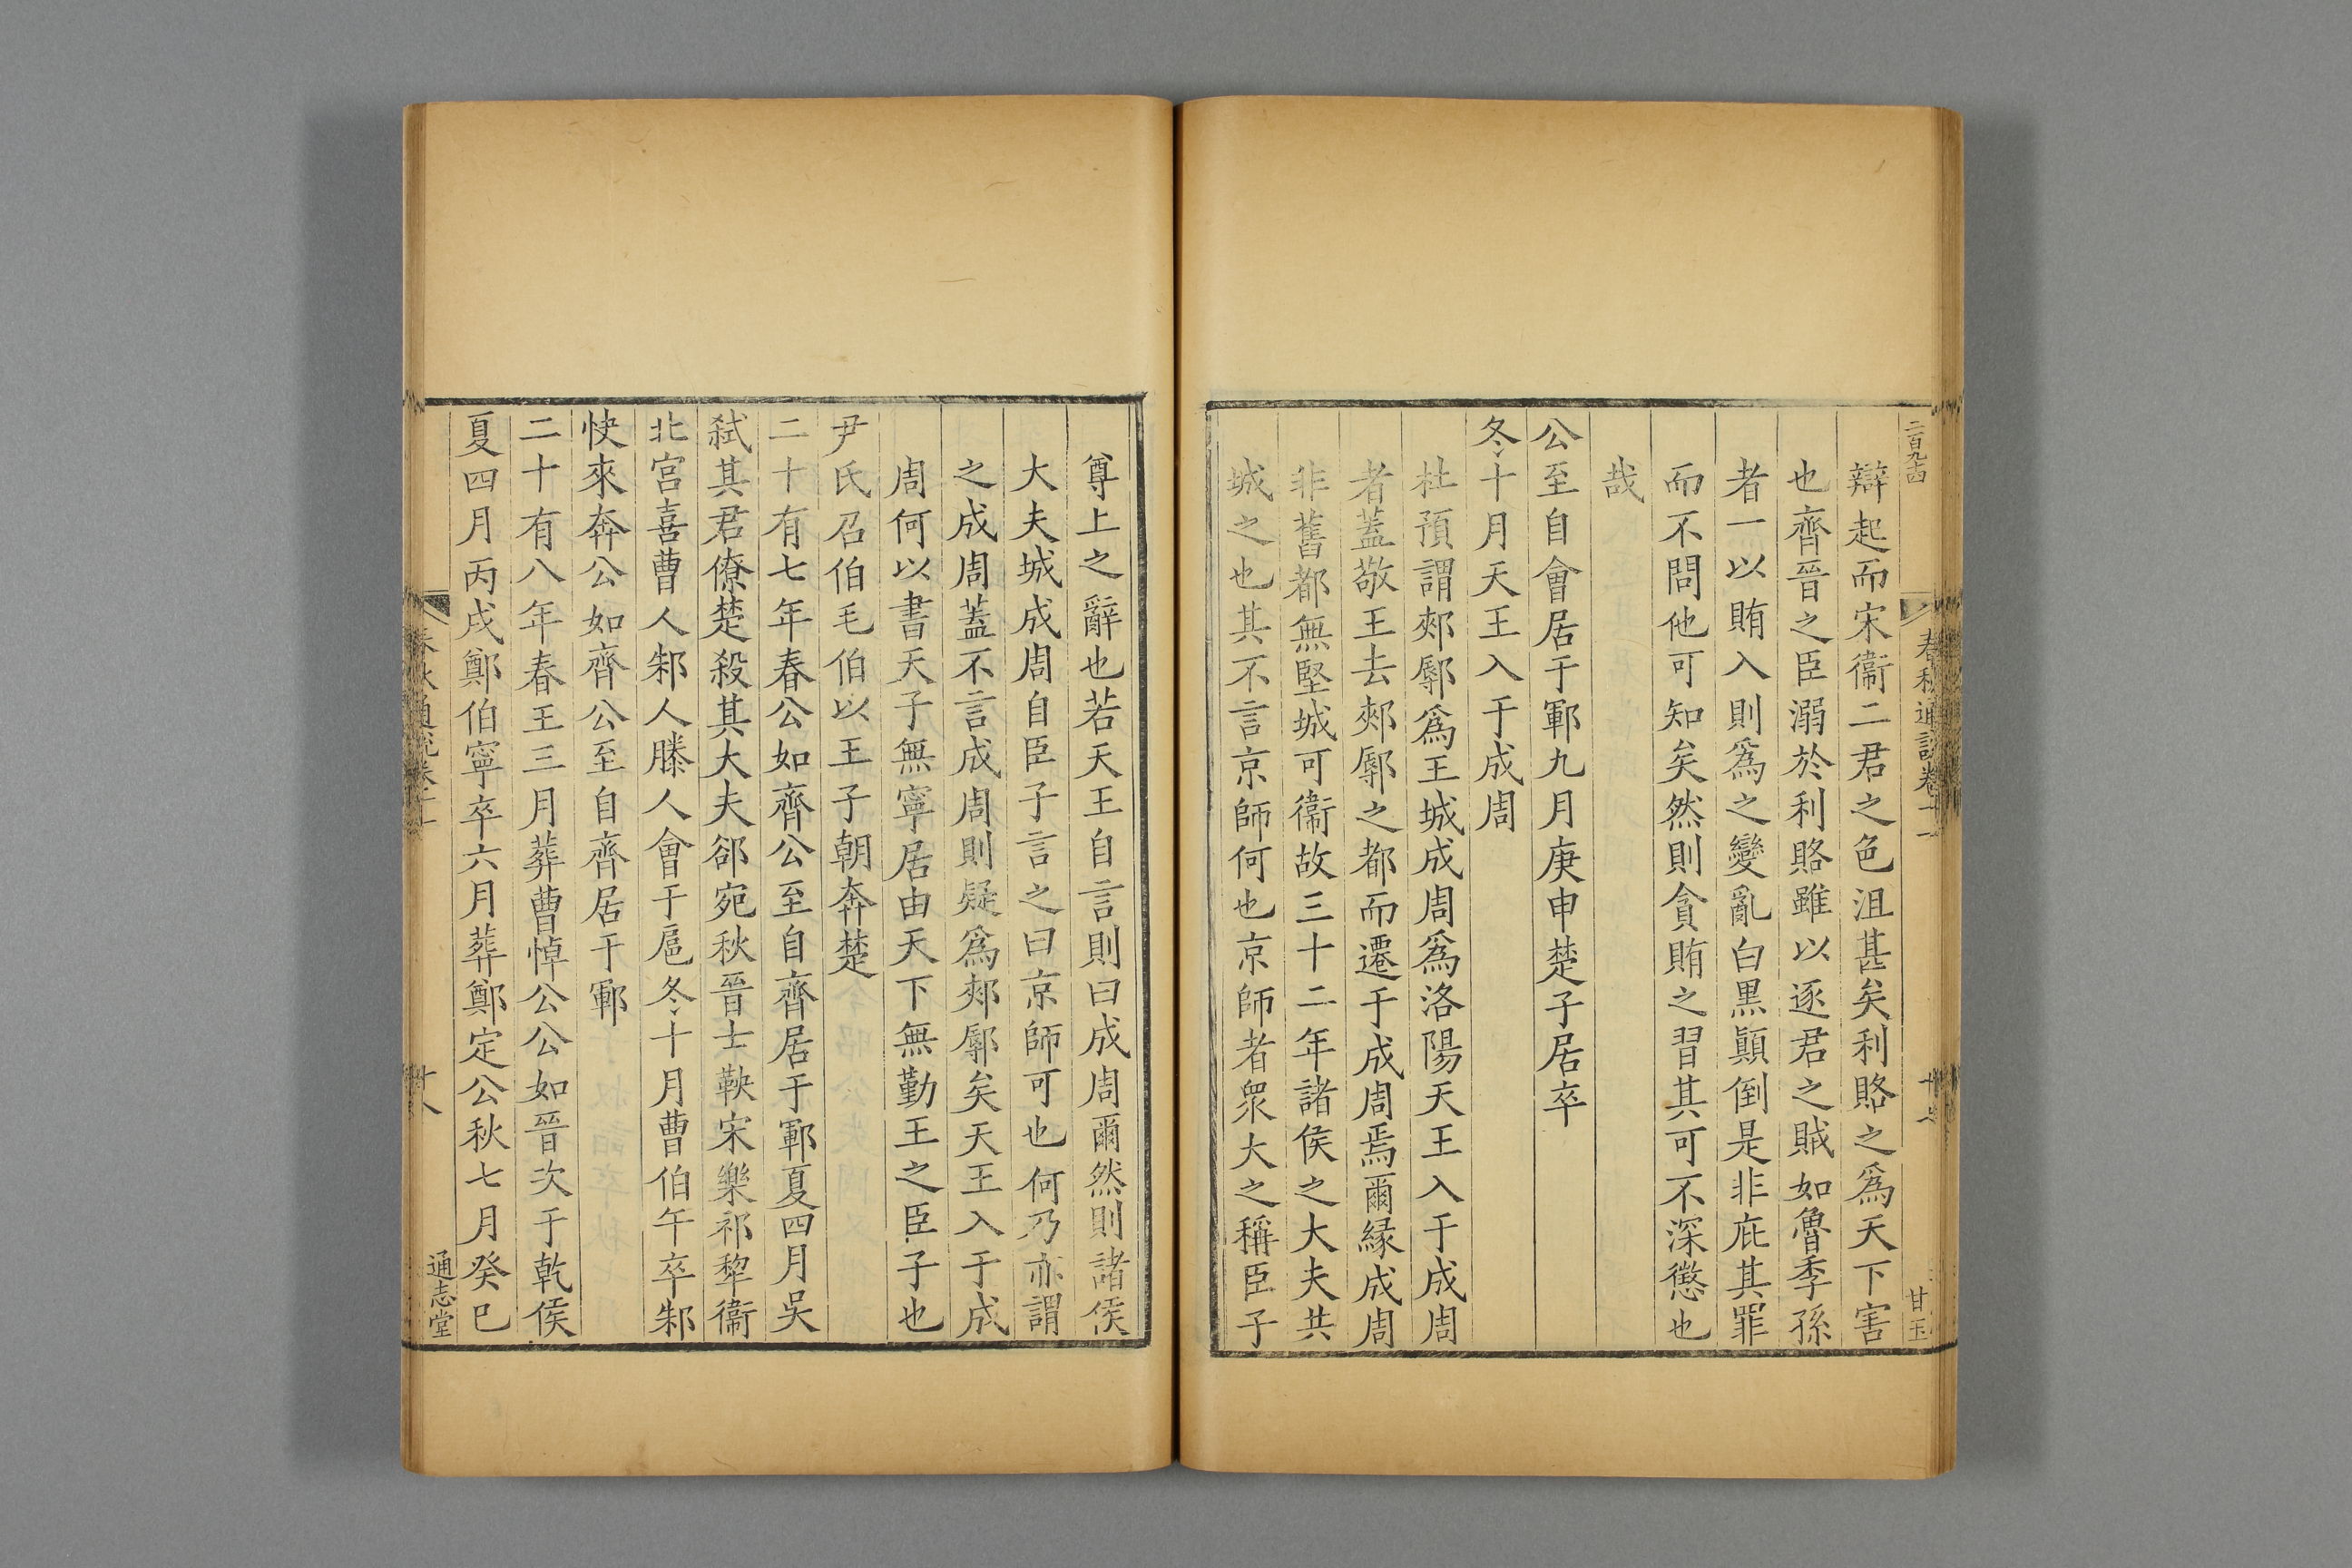 春秋通說卷十一
辯起而宋衞二君之色沮甚矣利賂之爲天下害
也齊晉之臣溺於利賂雖以逐君之賊如魯季孫
者一以賄入則爲之變亂白黒顚倒是非庇其罪
而不問他可知矣然則貪賄之習其可不深懲也
哉
公至自會居于鄆九月庚申楚子居卒
冬十月天王入于成周
杜預謂郟鄏爲王城成周爲洛陽天王入于成周
者蓋敬王去郟鄏之都而遷于成周焉爾緣成周
非舊都無堅城可衞故三十二年諸侯之大夫共
城之也其不言京師何也京師者衆大之稱臣子
尊上之辭也若天王自言則曰成周爾然則諸侯
大夫城成周自臣子言之曰京師可也何乃亦謂
之成周蓋不言成周則疑爲郟鄏矣天王入于成
周何以書天子無寧居由天下無勤王之臣子也
尹氏召伯毛伯以王子朝奔楚
二十有七年春公如齊公至自齊居于鄆夏四月吳
弒其君僚楚殺其大夫郤宛秋晉士鞅宋樂祁犂衞
北宮喜曹人邾人滕人會于扈冬十月曹伯午卒邾
快來奔公如齊公至自齊居于鄆
二十有八年春王三月葬曹悼公公如晉次于乾侯
夏四月丙戌鄭伯寧卒六月葬鄭定公秋七月癸巳
春秋通說卷十一
十八
通志堂